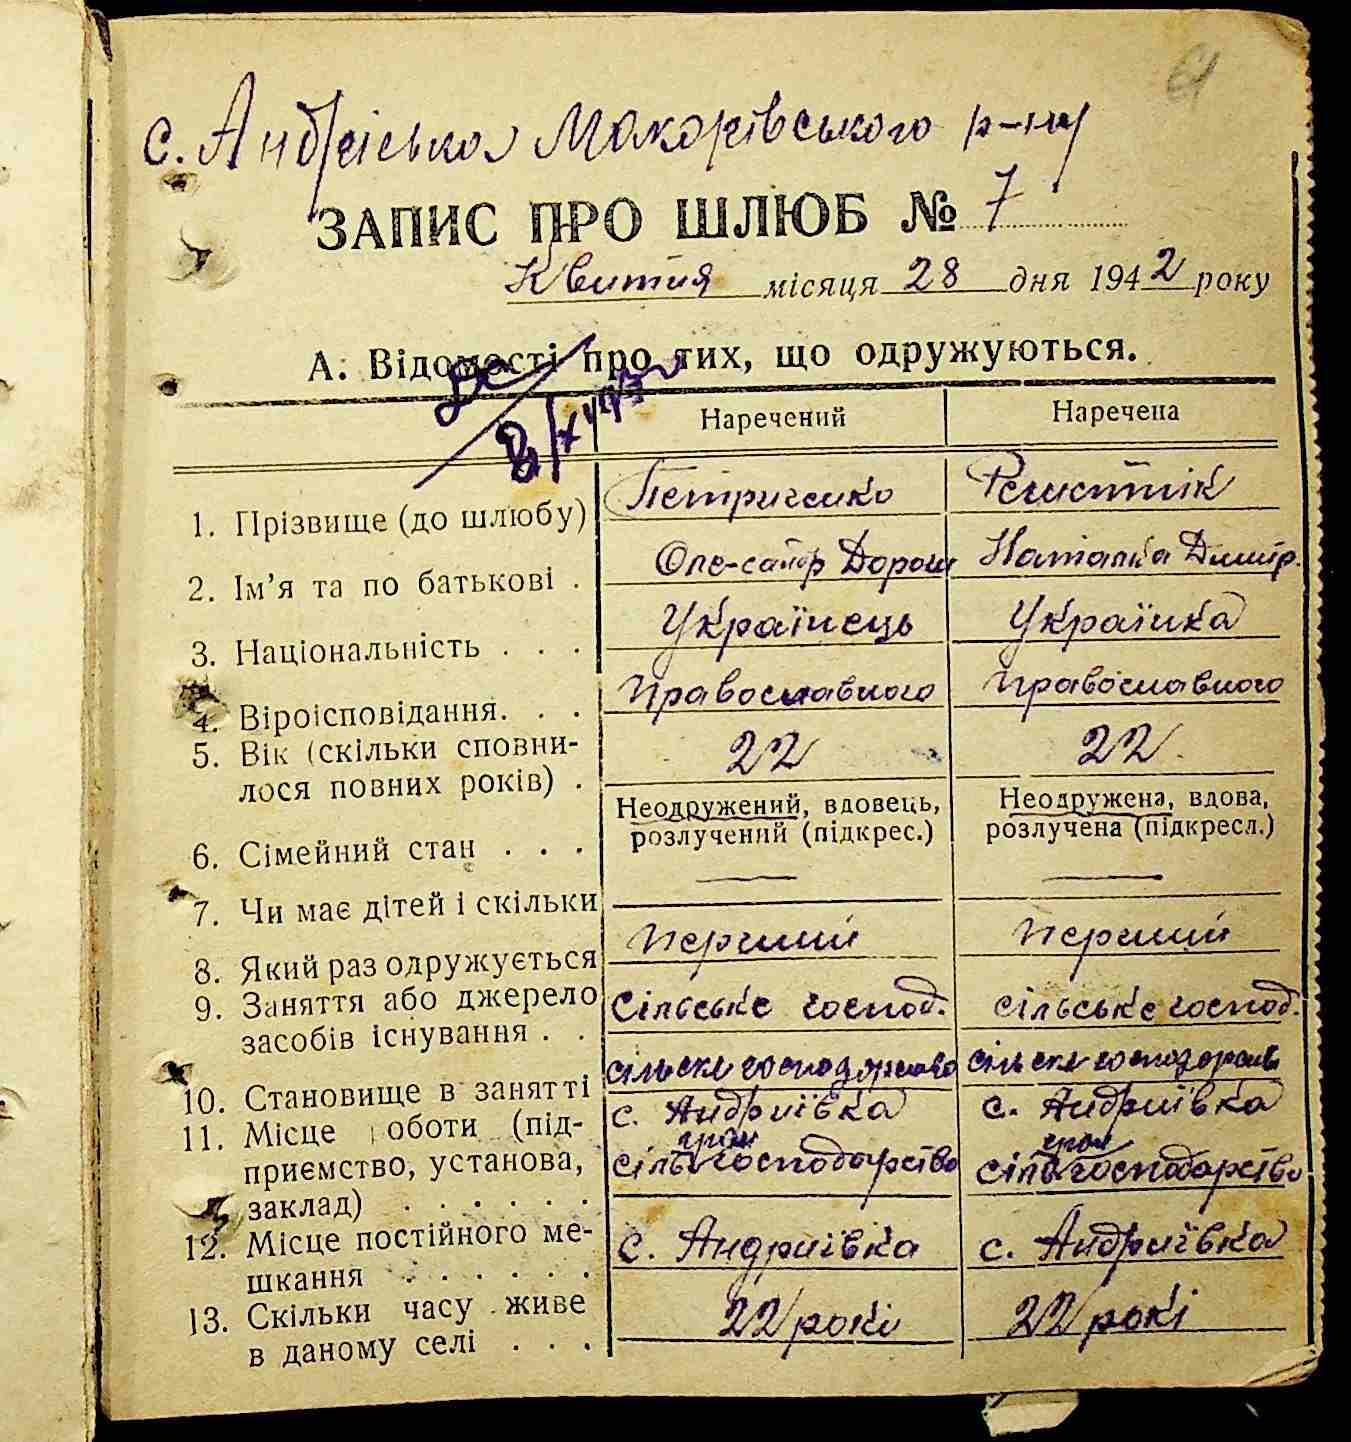 с. Андріївка Макарівського р-ну
ЗАПИС ПРО ШЛЮБ № 7
Квітня місяця 28 дня 1942 року
А. Відомості про тих, що одружуються.
Наречений Наречена
1. Прізвище (до шлюбу) Петриченко
2. Ім’я та по батькові . Оле-сандр Дорош Наталка Дмитр.
3. Національність . . . Українець Українка
4. Віроісповідання. . . Православного Православного
5. Вік (скільки сповни-
лося повних років) . 22 22
Неодружений, вдовець, Неодружена, вдова,
розлучений (підкрес.) розлучена (підкресл.)
6. Сімейний стан . . .
7. Чи має дітей і скільки — —
8. Який раз одружується Перший Перший
9. Заняття або джерело
засобів існування . . Сільське господ. сільське господ.
10. Становище в занятті сільске господарство сільске господарств
11. Місце роботи (під- с. Андриївка с. Андриївка
гром гром
приємство, установа, сільгосподарство сільгосподарство
заклад) . . . . . .
12. Місце постійного ме- с. Андриївка с. Андриївка
шкання . . . . . .
13. Скільки часу живе 22 рокі 22 рокі
в даному селі . . .